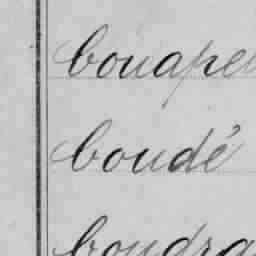 bouape
boudé
boudra